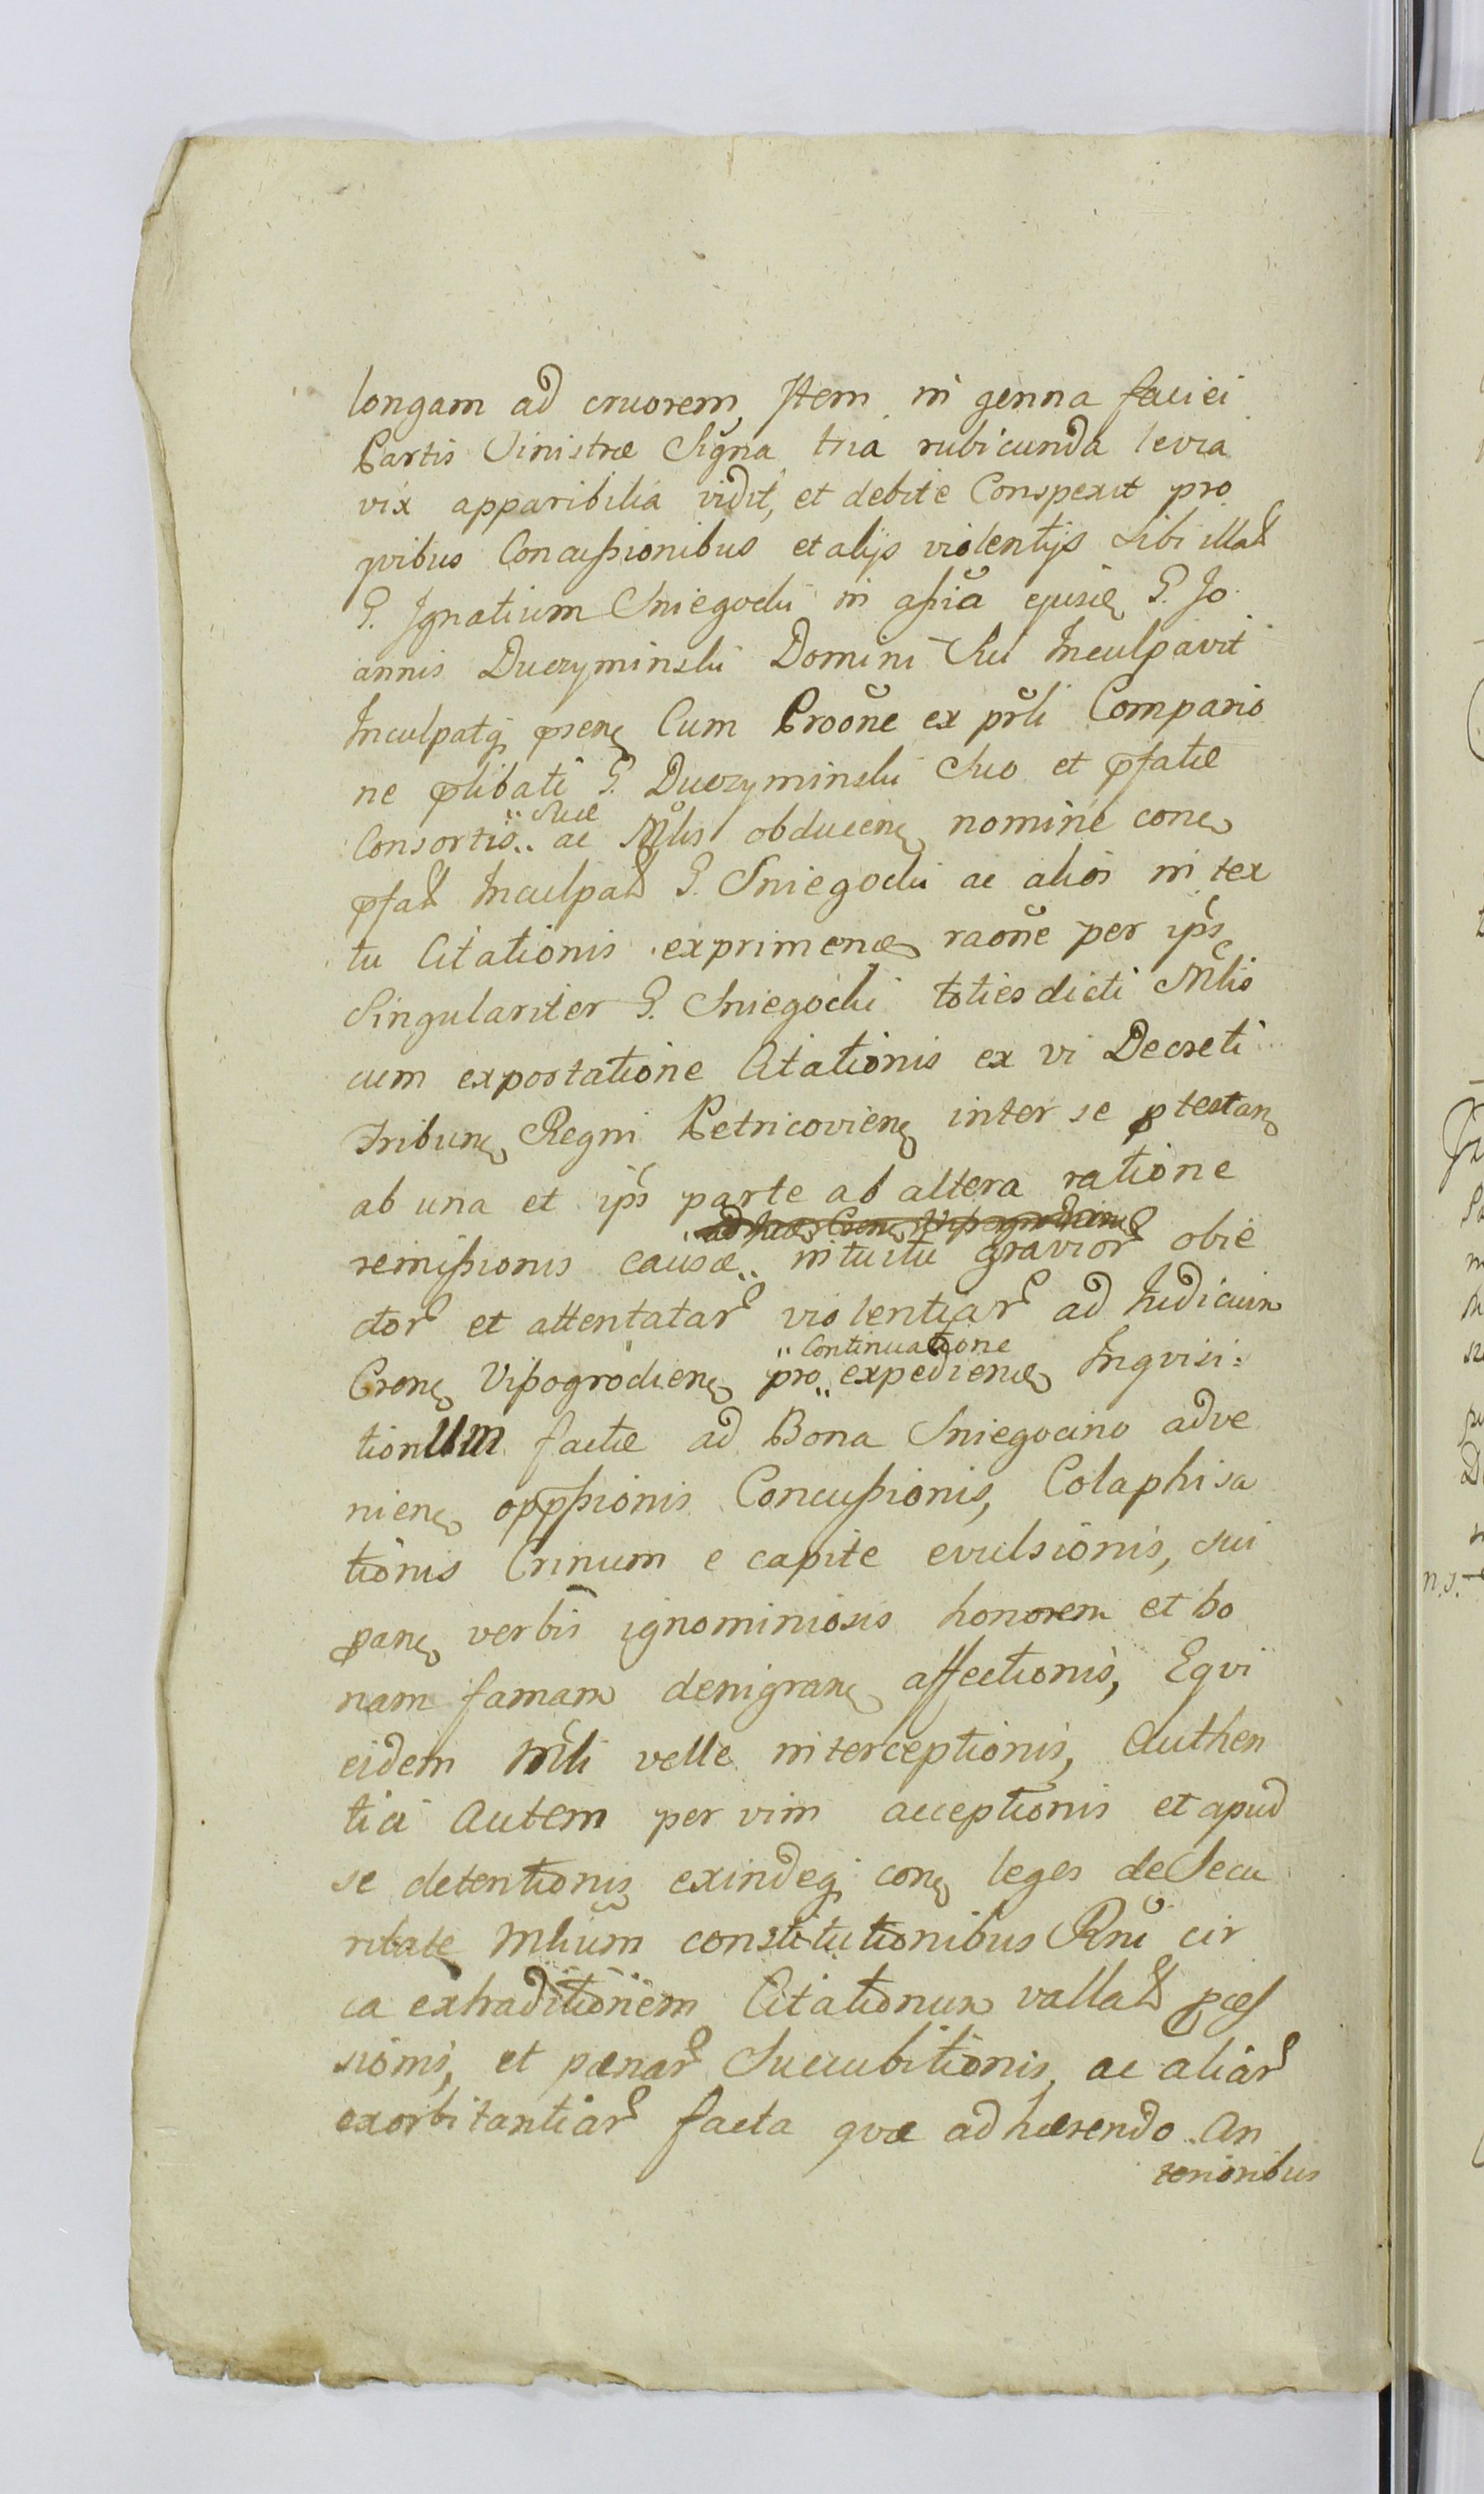 longam ad cruorem, Item in genna faciei
Partis Sinistræ Signa tria rubicunda levia
vix apparibilia vidit, et debite Conspexit pro
qvibus Concußionibus et alijs violentijs Sibi illat
G. Ignatium Sniegocki in aßia ejusd G. Jo
annis Duczyminski Domini Sui Inculpavit
Inculpatq præsen Cum Proone ex prli Compario
ne prælibati G. Duczyminski Suo et præfatæ
Consortis .. Suæ .. ac Mlis obducen nomine con
præfat Inculpat G. Sniegocki ac alios in tex
tu Citationis exprimend raone per ips
Singulariter G. Sniegocki totiesdicti Mlis
cum exportatione Citationis ex vi Decreti
Tribun Regni Petricovien inter se protestan
ab una et ips parte ab altera ratione
remißionis causæ .. intuitu gravior obie
ctor et attentatar violentiar ad Judicium
Cren Vißogrodien pro .. Continuatione .. expediend Inqvisi:
tionum factæ ad Bona Sniegocino adve
nien oppreßionis Concußionis, Colaphisa
tionis Crinum e capite evulsionis, sui
propan verbis ignominiosis honorem et bo
nam famam denigran affectionis, Eqvi
eidem Mli velle interceptionis, Authen
tici autem per vim acceptionis et apud
se detentionis exindeq con leges de Secu
ritate Mlium constitutionibus Rni cir
ca extraditionem Citationum vallat proces
sionis, et pænar Succubitionis, ac aliar
exorbitantiar facta qvæ adhærendo An
terioribus